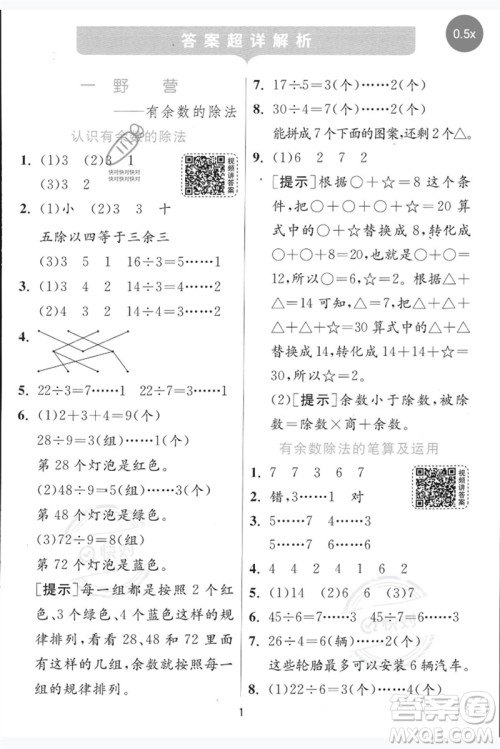 答案超详解析
0.5x
一 野 营
——有余数的除法
认识有余数的除法
快对快对快对
快对快对快对
视频讲答案
1. (1)3 (2)3 1
2. (1)小 (2)3 3 十
五除以四等于三余三
(3)3 5 1 16÷3=5……1
3. (1)3 1 4 2 14÷3=4……2
(2)4 3 2 3 11÷4=2……3
4.
5. 22÷3=7……1 22÷7=3……1
6. (1)2+3+4=9(个)
28÷9=3(组)……1(个)
第 28 个灯泡是红色。
(2)48÷9=5(组)……3(个)
第 48 个灯泡是绿色。
72÷9=8(组)
第 72 个灯泡是蓝色。
[提示]每一组都是按照 2 个红
色、3 个绿色、4 个蓝色这样的规
律排列。要看 28、48 和 72 有
这样的几组,余数按照这样的规
律排列。
7. 17÷5=3(个)……2(个)
8. 30÷4=7(个)……2(个)
能拼成 7 个下面的图案,还剩 2 个△。
9. (1)6 2 7 2
[提示]根据○+☆=△,可以
把○+○+☆+☆=20 的
算式中的○+☆替换成△,
就可以转化成△+△=20,
所以△=10。
根据☆=△+△+△,可以
把☆+☆+△+△=24 的
算式中的☆替换成△+△+
△,就可以转化成 8 个△=
24,所以△=3。
(2)[提示]余数小于除数,被
除数=除数×商+余数。
有余数除法的笔算及运用
1. 7 7 3 6 7
2. 错,……3 1 对
3. 5……5 7……4
6……7 6……4
5. (1)14 (2)1 2 6
6. 45÷6=7……3 45÷7=6……3
7. 26÷4=6(辆)……2(个)
这些轮胎最多可以安装 6 辆汽车。
8. (1)22÷6=3(组)……4(个)
1
快对
答案圈
MXQE.COM